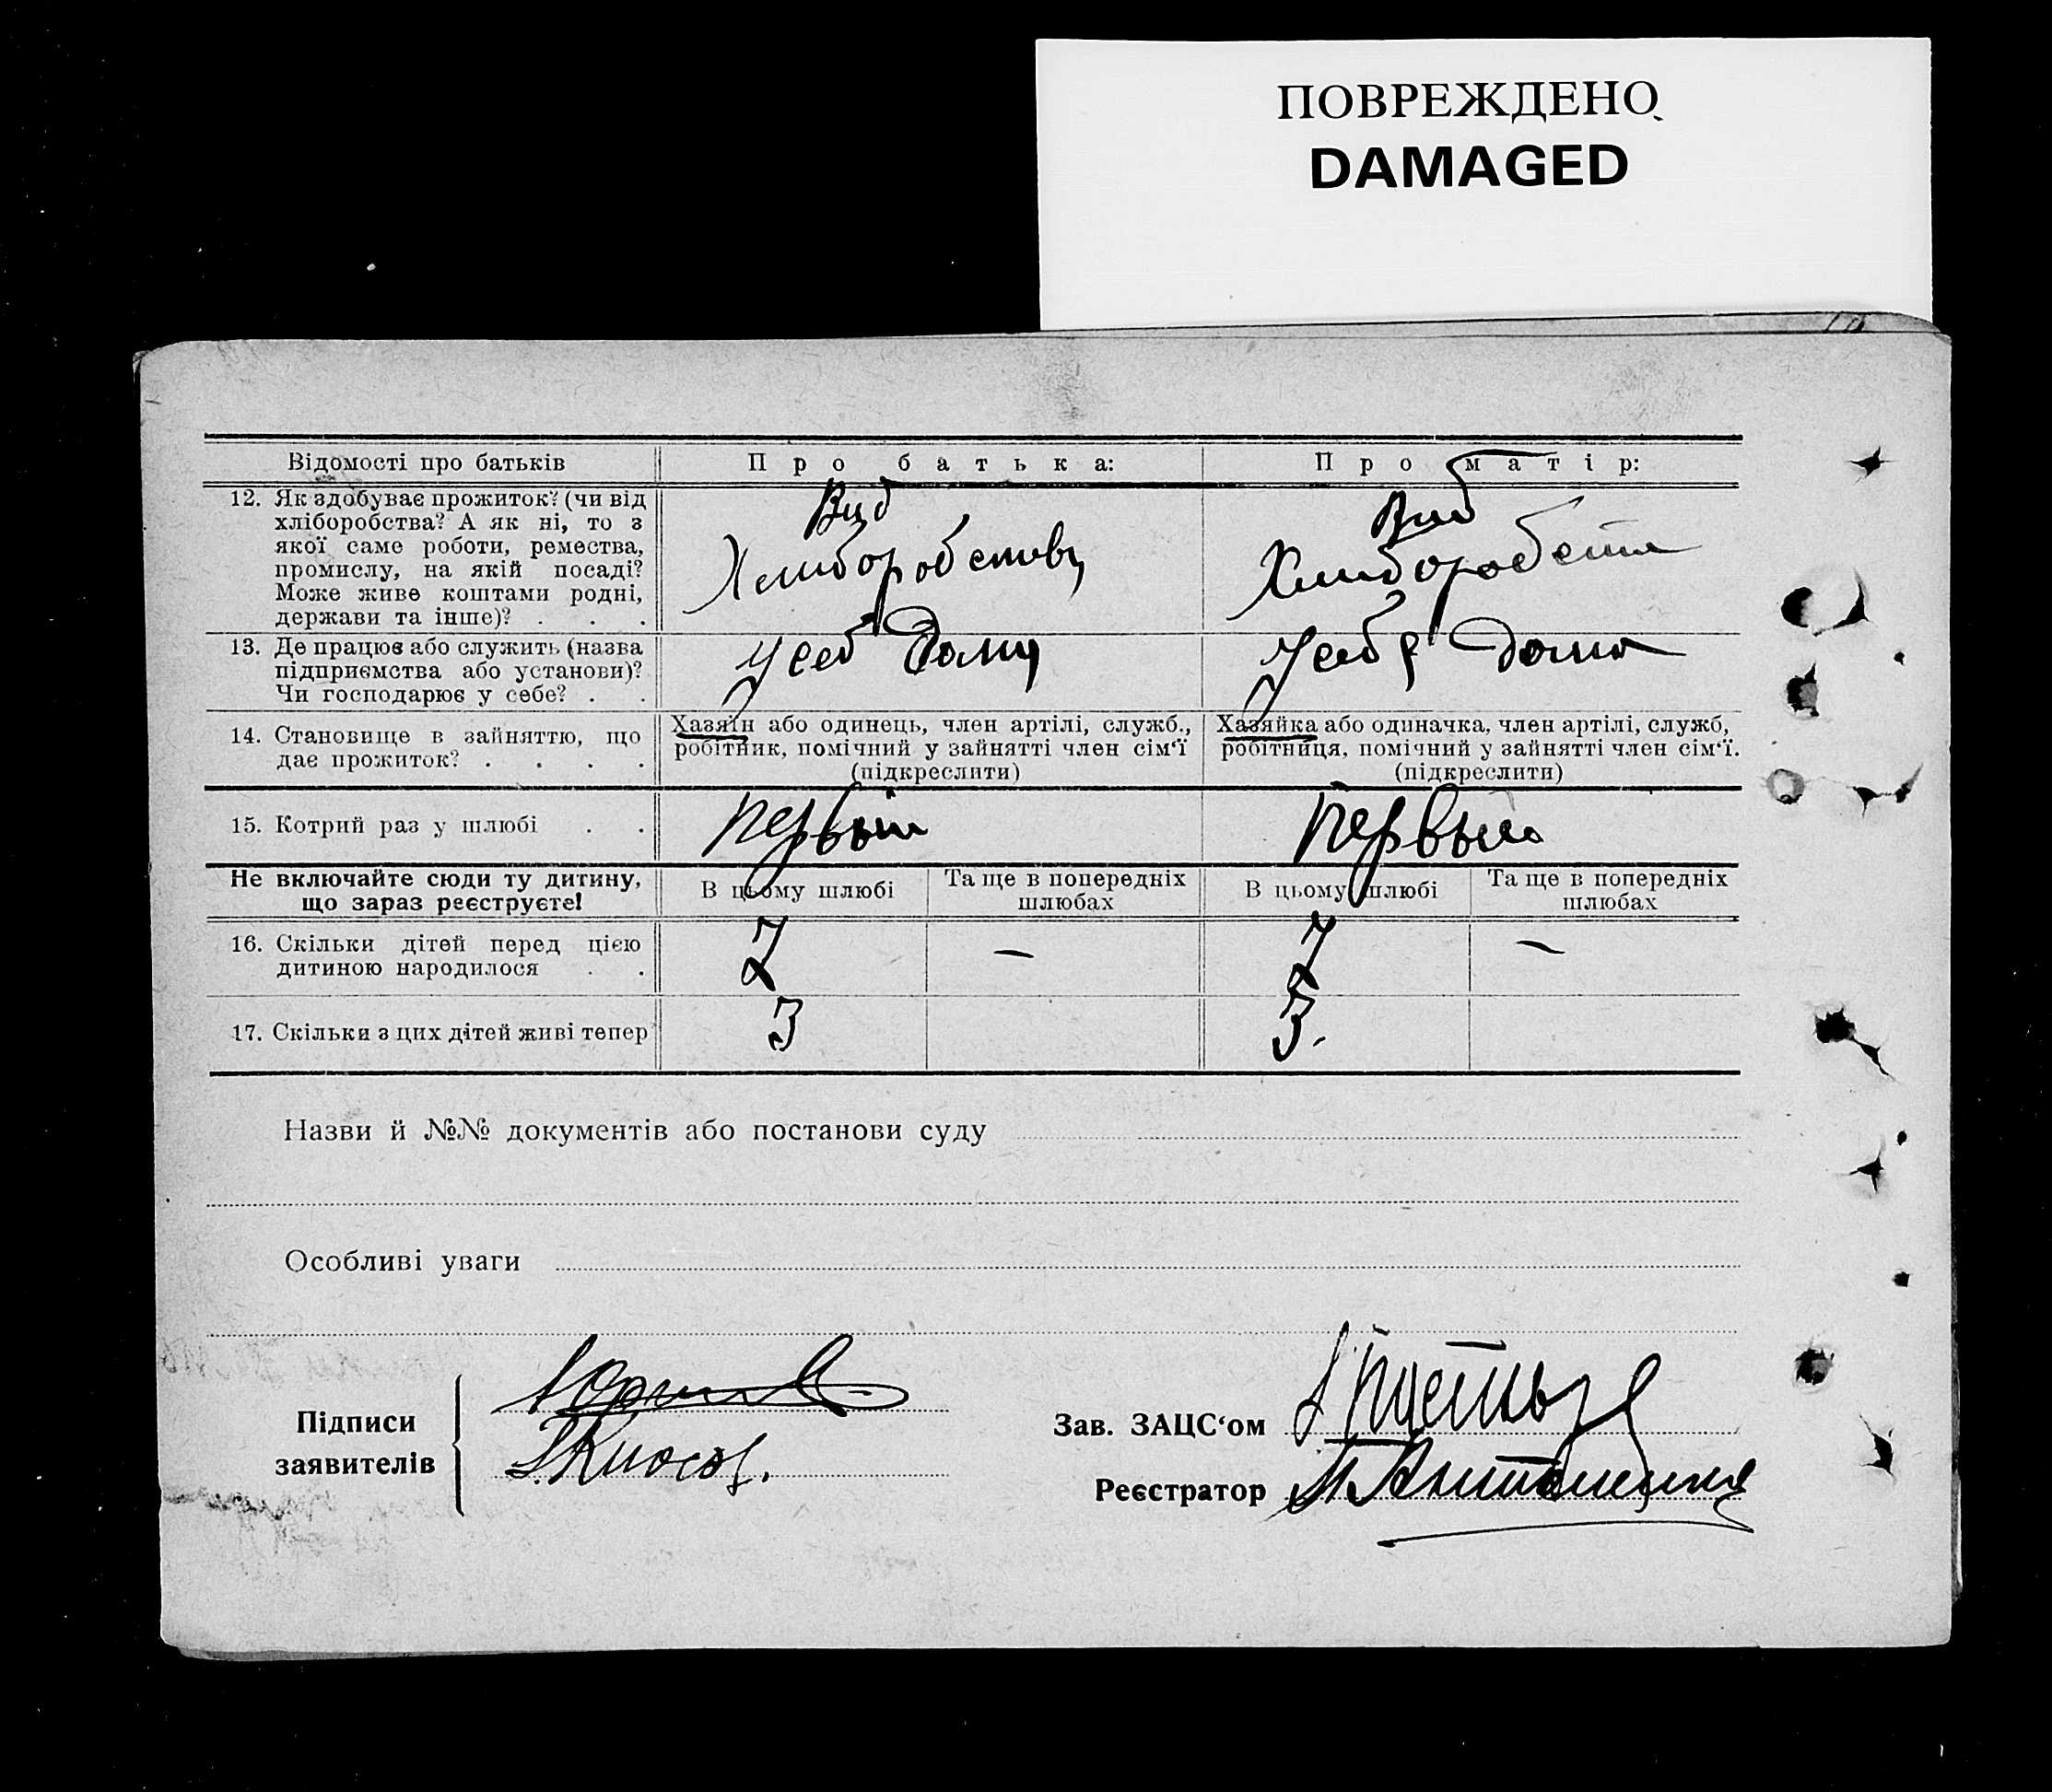 ПОВРЕЖДЕНО
DAMAGED
Відомості про батьків
Про батька:
Про матір:
12. Як здобуває прожиток? (чи від
хліборобства? А як ні, то з
якої саме роботи, ремества,
промислу, на якій посаді?
Може живе коштами родні,
держави та інше)? . . .
Вид
Хлиборобства
Вид
Хлиборобства
13. Де працює або служить (назва
підприємства або установи)?
Чи господарює у себе? . .
Усеб дома
Усебя дома
14. Становище в зайняттю, що
дає прожиток? . . . .
Хазяїн або одинець, член артілі, служб.,
робітник, помічний у зайнятті член сім‘ї
(підкреслити)
Хазяйка або одиначка, член артілі, служб,
робітниця, помічний у зайнятті член сім‘ї.
(підкреслити)
15. Котрий раз у шлюбі . .
первый
первый
Не включайте сюди ту дитину,
що зараз реєструєте!
В цьому шлюбі
Та ще в попередніх
шлюбах
В цьому шлюбі
Та ще в попередніх
шлюбах
16. Скільки дітей перед цією
дитиною народилося . .
–
–
17. Скільки з цих дітей живі тепер
3
3.
Назви й №№ документів або постанови суду
Особливі уваги
Підписи
заявителів
Зав. ЗАЦС‘ом
Реєстратор